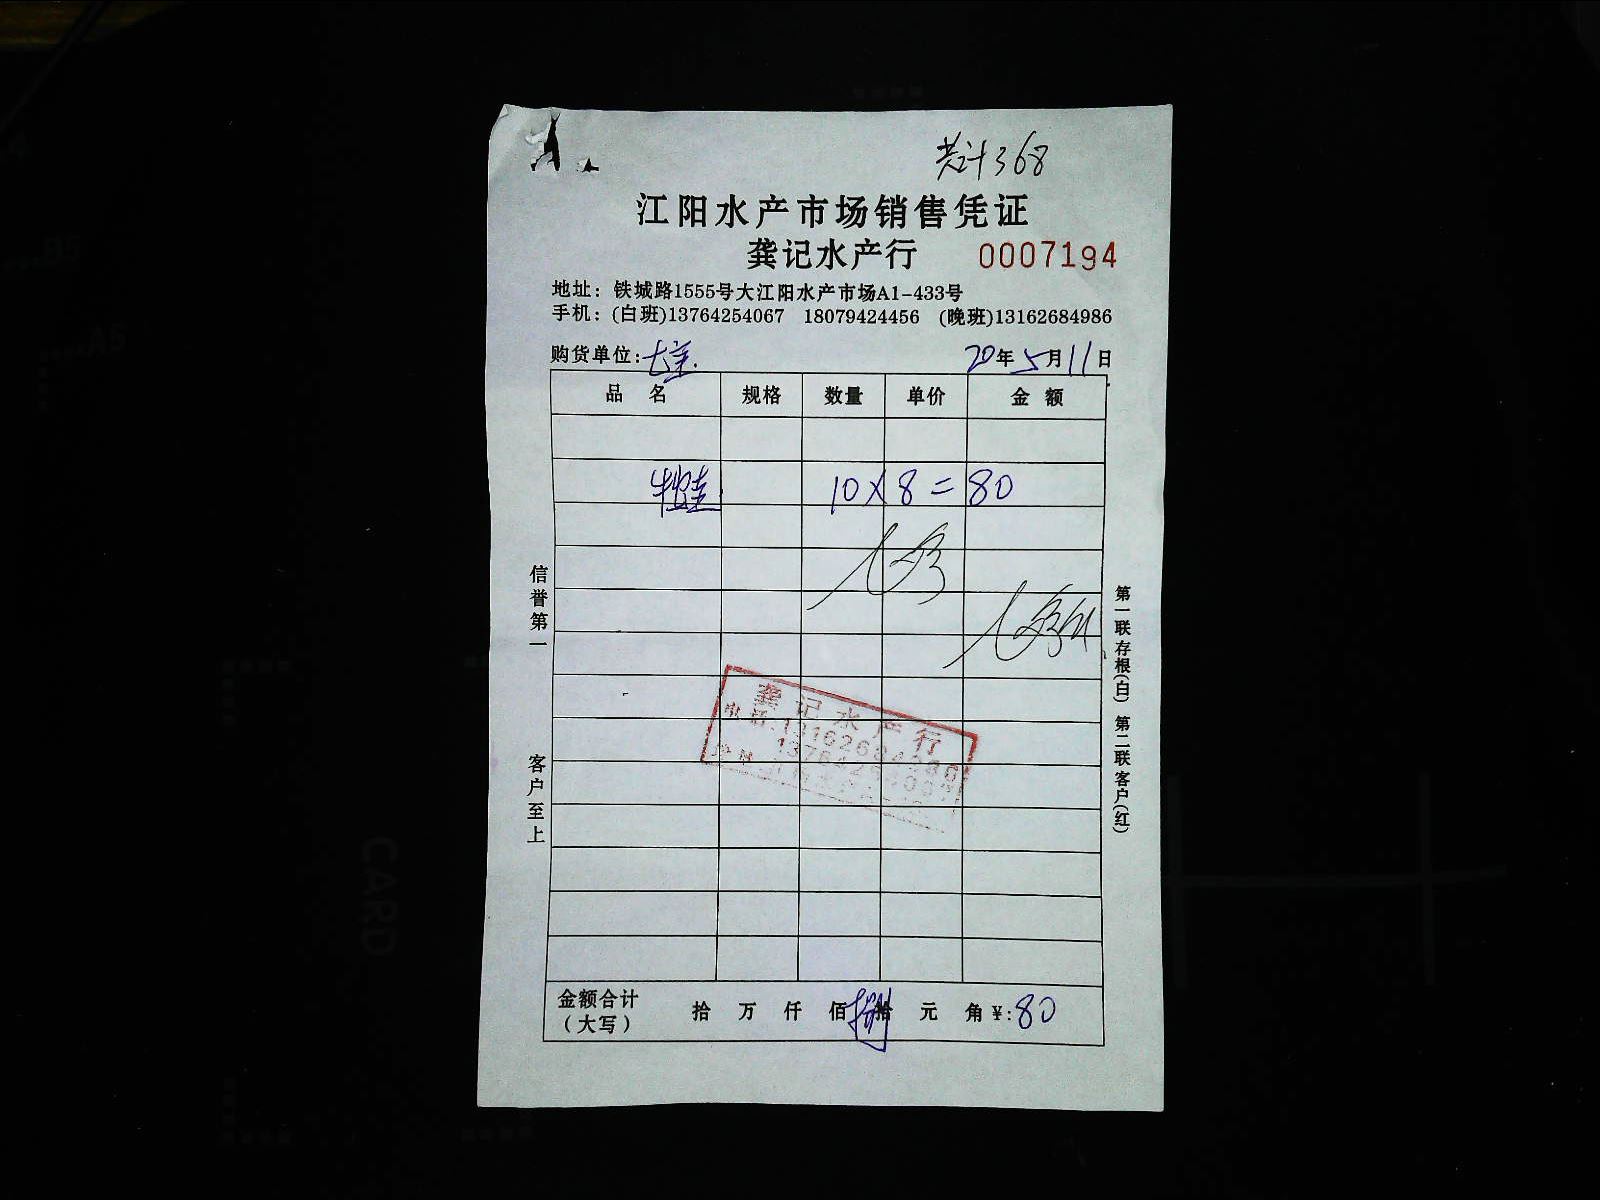 共计368
江阳水产市场销售凭证
龚记水产行 0007194
地址：铁城路1555号大江阳水产市场A1-433号
手机：(白班)13764254067 18079424456 (晚班)13162684986
购货单位: 20年5月11日
品名 规格 数量 单价 金额
牛蛙 10×8=80
信誉第一
客户至上
第一联存根(白) 第二联客户(红)
龚记水产行
电话:13162684986
金额合计
(大写)
拾 万 仟 佰 捌拾 元 角 ¥:80
CARD
A5
B5